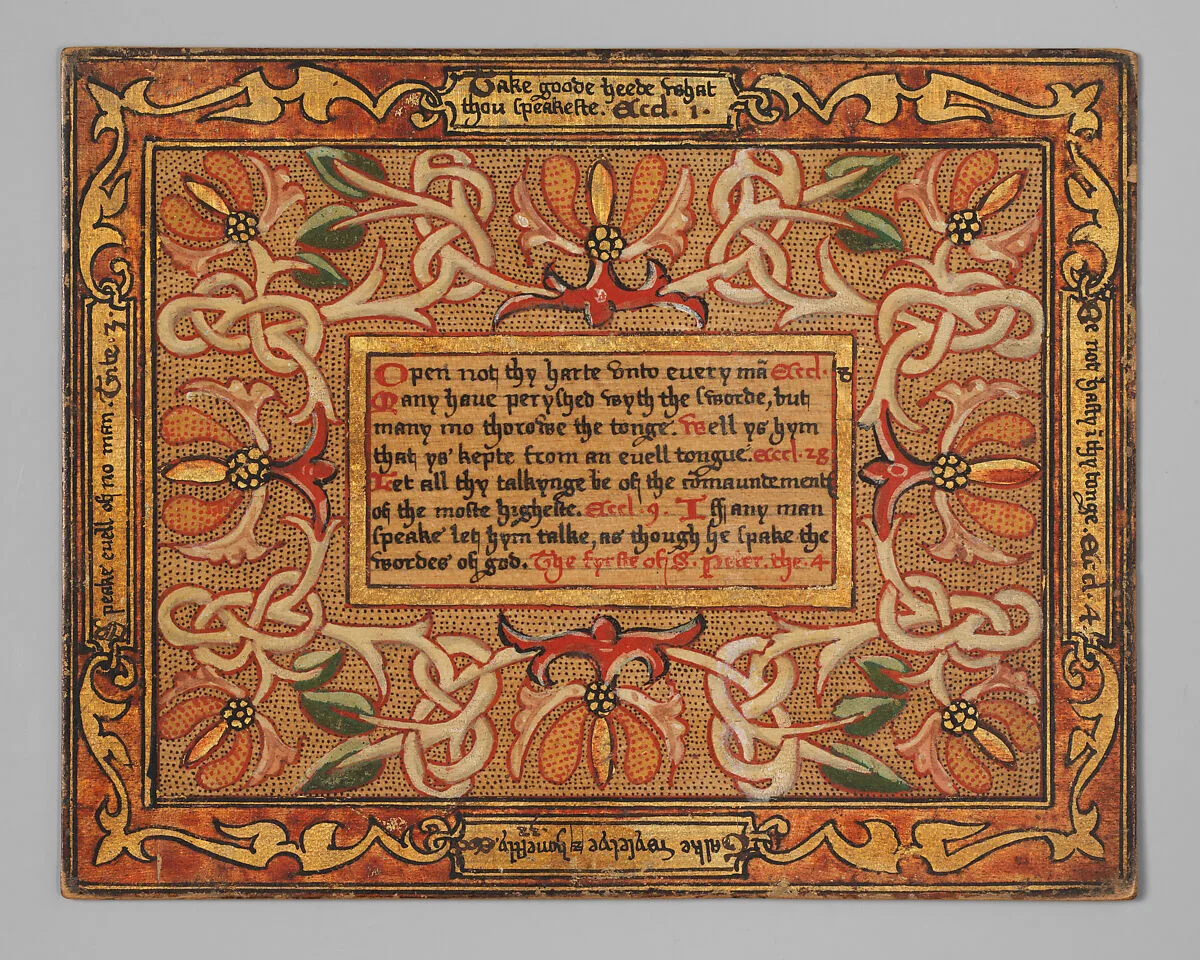 Take goode heede what
thou speakeste. Eccl. 1.
Open not thy harte vnto euery mã Eccl. 8
Many haue peryshed wyth the sworde, but
many mo thorowe the tonge. Well ys hym
that ys kepte from an euell tongue. eccl. 28
Let all thy talkynge be of the cõmaundement
of the moste higheste. Eccl. 9. Iff any man
speake let hym talke, as though he spake the
wordes of god. The fyrste of S. Peter. the. 4
Be not hasty ĩ thy tonge. Eccl. 4
Talke wyselye & honestly.
Speake euell of no man. Tite. 3